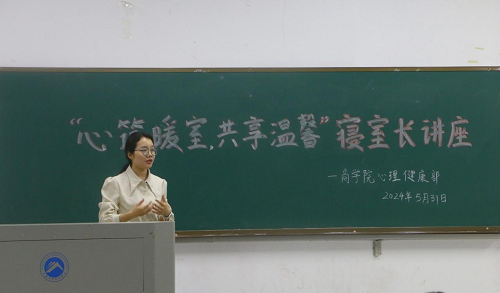 “心筑暖室,共享温馨”寝室长讲座
—商学院心理健康部
2024年5月31日